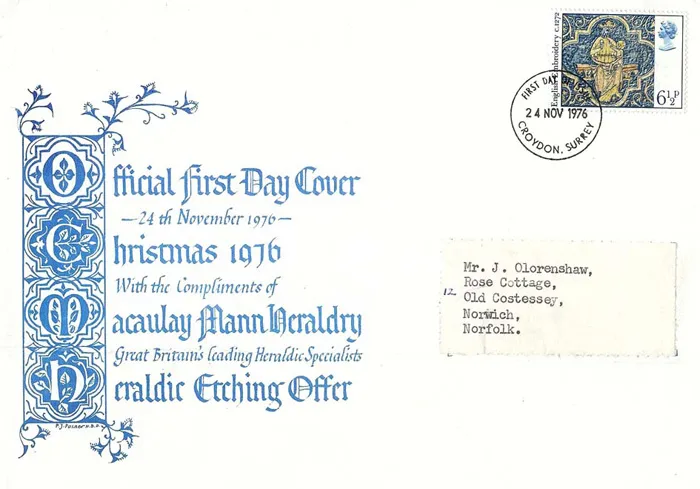 English Embroidery c.1272
6½P
FIRST DAY OF ISSUE
24 NOV 1976
CROYDON, SURREY
Official First Day Cover
—24th November 1976—
Christmas 1976
With the Compliments of
Macaulay Mann Heraldry
Great Britain's leading Heraldic Specialists
Heraldic Etching Offer
Mr. J. Olorenshaw,
Rose Cottage,
12 Old Costessey,
Norwich,
Norfolk.